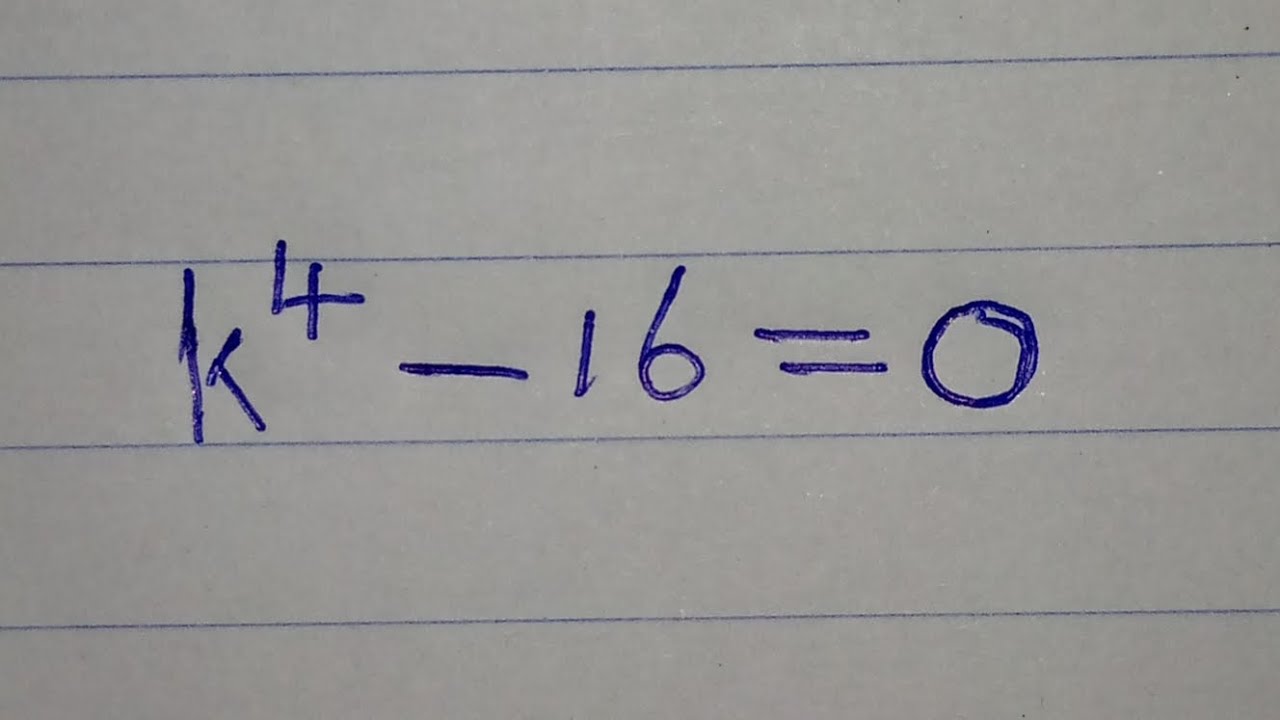 k⁴ − 16 = 0